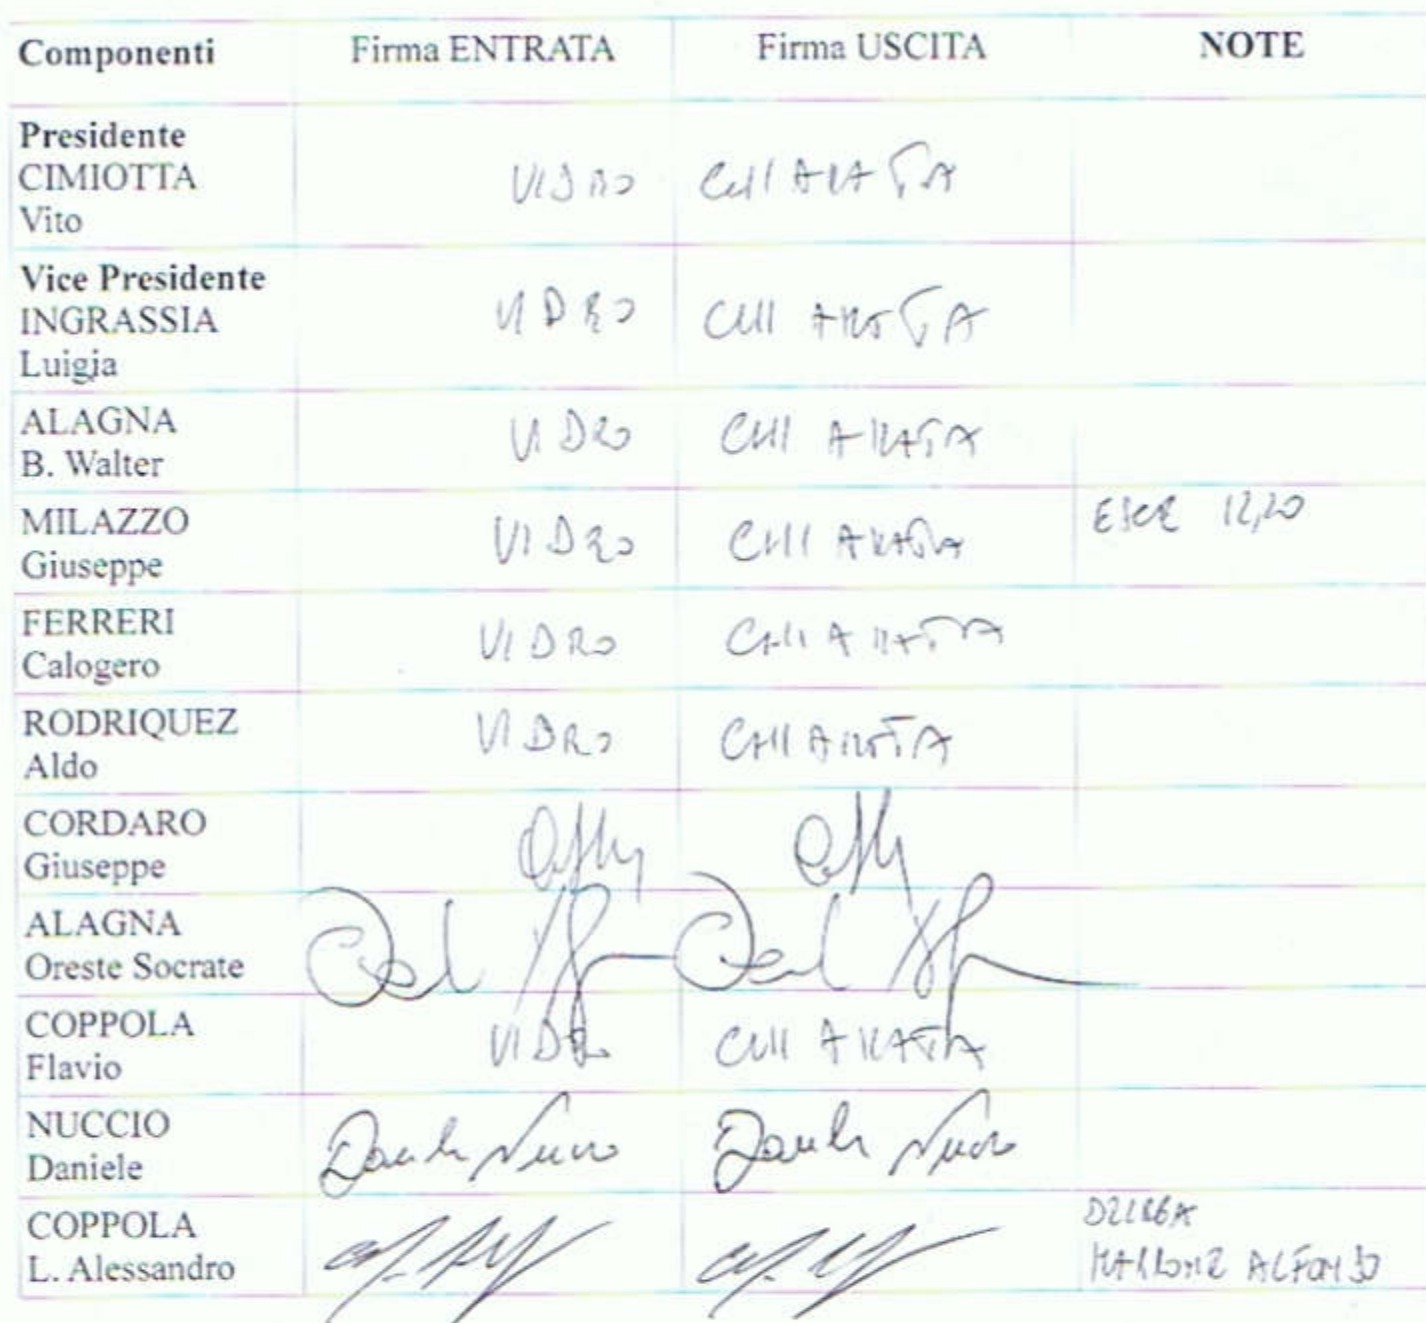 Componenti Firma ENTRATA Firma USCITA NOTE
Presidente
CIMIOTTA
Vito
VIDRO CHIAMATA
Vice Presidente
INGRASSIA
Luigia
VIDRO CHIAMATA
ALAGNA
B. Walter
VIDRO CHIAMATA
MILAZZO
Giuseppe
VIDRO CHIAMATA ESCE 12,20
FERRERI
Calogero
VIDRO CHIAMATA
RODRIQUEZ
Aldo
VIDRO CHIAMATA
CORDARO
Giuseppe
ALAGNA
Oreste Socrate
COPPOLA
Flavio
VIDRO CHIAMATA
NUCCIO
Daniele
Daniele Nuccio Daniele Nuccio
COPPOLA
L. Alessandro
DELEGA
ALFONSO